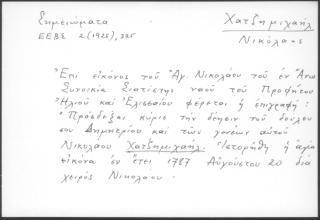 Σημειώματα
ΕΕΒΣ 2 (1925), 325
Χατζημιχαήλ
Νικόλαος
Ἐπί εἰκόνος τοῦ Ἁγ. Νικολάου τοῦ ἐν Ἄνω
Συνοικίᾳ Σιατίστης ναοῦ τοῦ Προφήτου
Ἠλιού καί Ἐλισσαίου φέρεται ἡ ἐπιγραφή:
"Πρόσδεξαι κύριε τήν δέησιν τοῦ δούλου
σου Δημητρίου καί τῶν γονέων αὐτοῦ
Νικολάου Χατζημιχαήλ. Ἱστορήθη ἡ ἁγία
εἰκόνα ἐν ἔτει 1787 Αὐγούστου 20 διά
χειρός Νικολάου.